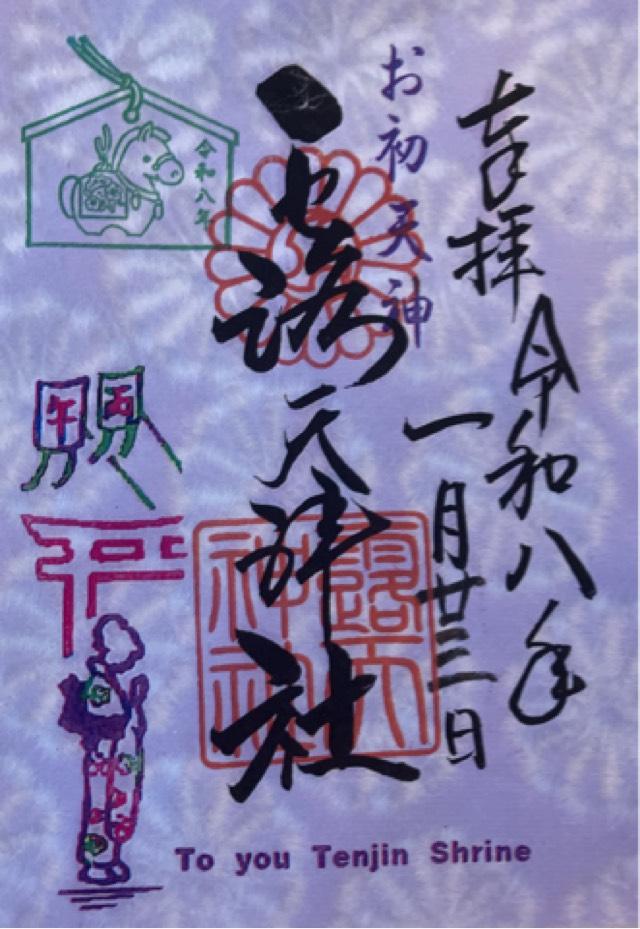 奉拝
令和八年
一月廿三日
お初天神
露天神社
露天
神社
令和八年
丙
午
To you Tenjin Shrine